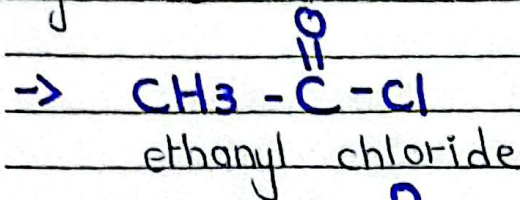 O
||
-> CH3 - C - Cl
ethanyl chloride